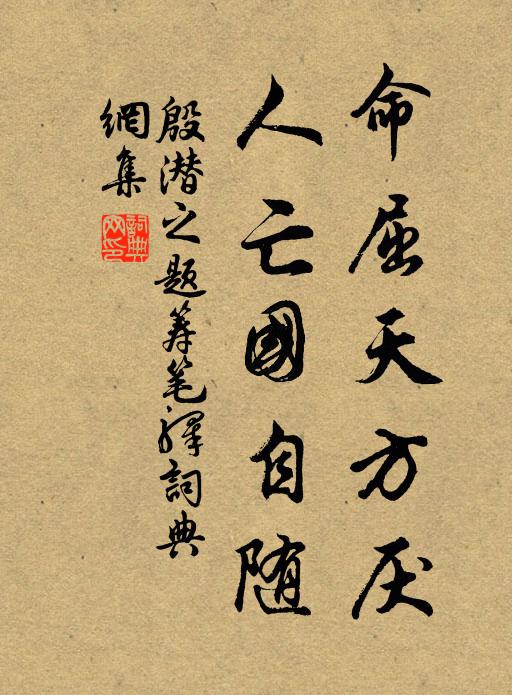 命屈天方厌
人亡國自随
殷潜之题筹笔驿詞典
網集
詞典
网印